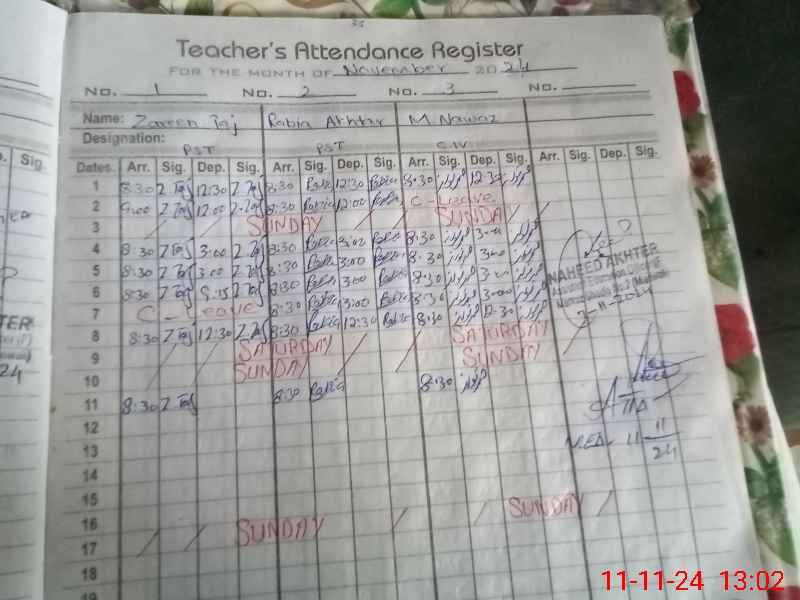 33
Teacher's Attendance Register
FOR THE MONTH OF November 2024
No. 1 No. 2 No. 3 No.
Name: Zareen Taj Rabia Akhtar M. Nawaz
Designation: PST PST C.IV
Dates Arr. Sig. Dep. Sig. Arr. Sig. Dep. Sig. Arr. Sig. Dep. Sig. Arr. Sig. Dep. Sig.
1 8:30 Z.Taj 12:30 Z.Taj 8:30 Rabia 12:30 Rabia 8:30 نواز 12:30 نواز
2 9:00 Z.Taj 12:00 Z.Taj 8:30 Rabia 12:00 Rabia C-Leave
3 SUNDAY SUNDAY
4 8:30 Z.Taj 3:00 Z.Taj 8:30 Rabia 3:00 Rabia 8:30 نواز 3:00 نواز
5 8:30 Z.Taj 3:00 Z.Taj 8:30 Rabia 3:00 Rabia 8:30 نواز 3:00 نواز
6 8:30 Z.Taj Z.Taj 8:30 Rabia 3:00 Rabia 8:30 نواز 3:00 نواز
7 C-Leave 8:30 Rabia 3:00 Rabia 8:30 نواز 3:00 نواز
8 8:30 Z.Taj 12:30 Z.Taj 8:30 Rabia 12:30 Rabia 8:30 نواز 12:30 نواز
9 SATURDAY SATURDAY
10 SUNDAY SUNDAY
11 8:30 Z.Taj 8:30 Rabia 8:30 نواز
12
13
14
15
16 SUNDAY
17 SUNDAY
18
19
NAHEED AKHTER
11-11-24 13:02